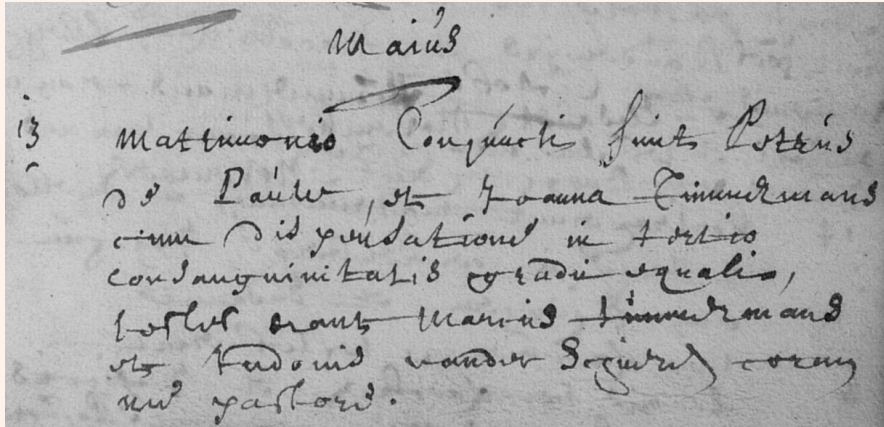 Maius
13 Matrimonio Conjuncti sunt Petrus
de Pauw, et Joanna Timmermans
cum dispensatione in tertio
consanguinitatis gradu equali,
testes erant Marcus timmermans
et Judovis vander coram
me pastore.